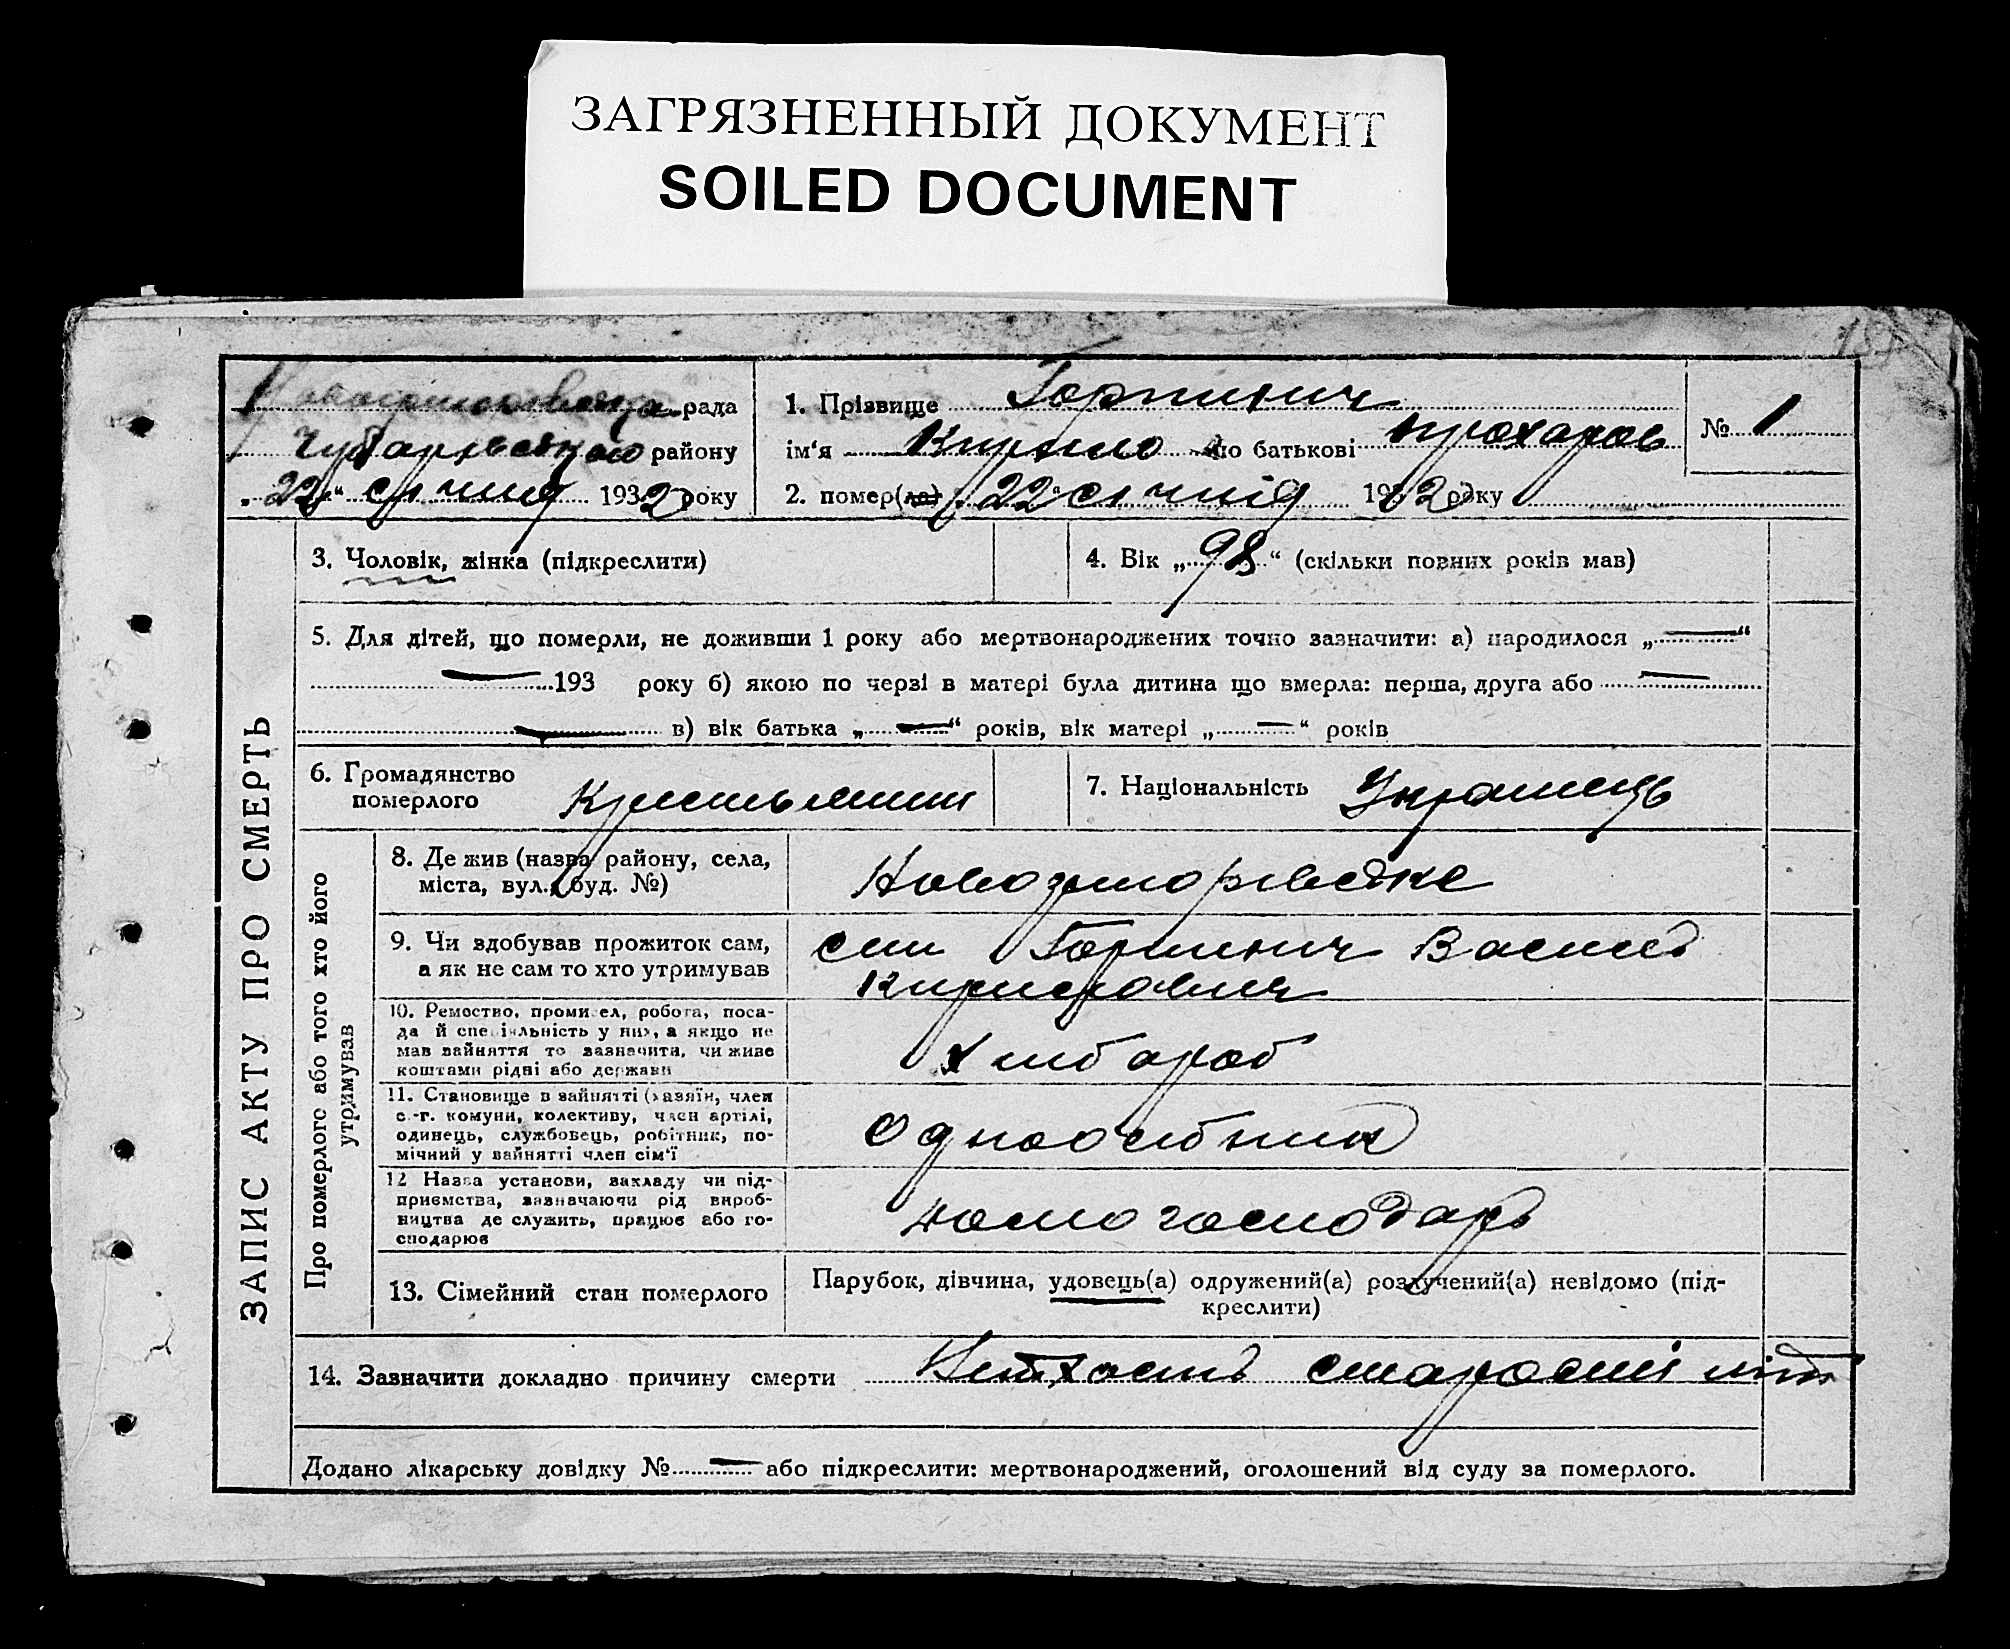 ЗАГРЯЗНЕННЫЙ ДОКУМЕНТ
SOILED DOCUMENT
рада
Чубарівського району
„22“ січня 1932 року
1. Прізвище Горпинич
ім‘я Кирило по батькові Прохоров
2. помер(ла) „22“ січня 1932 року
№ 1
ЗАПИС АКТУ ПРО СМЕРТЬ
3. Чоловік, жінка (підкреслити)
4. Вік „98“ (скільки повних років мав)
5. Для дітей, що померли, не доживши 1 року або мертвонароджених точно зазначити: а) народилося „—“
— 193 року б) якою по черзі в матері була дитина що вмерла: перша, друга або —
— в) вік батька „—“ років, вік матері „—“ років
6. Громадянство
померлого
7. Національність Украинець
Про померлого або того хто його
утримував
8. Де жив (назва району, села,
міста, вул., буд. №)
9. Чи здобував прожиток сам,
а як не сам то хто утримував
син Горпинич Василь
Кирилович
10. Ремество, промисел, робота, поса-
да й спеціяльність у них, а якщо не
мав вайняття то зазначити, чи живе
коштами рідні або держави
хлібороб
11. Становище в вайнятті (хазяїн, член
с.-г. комуни, колективу, член артілі,
одинець, службовець, робітник, по-
мічний у вайнятті член сім‘ї
Одноосібник
12 Назва установи, закладу чи під-
приємства, зазначаючи рід вироб-
ництва де служить, працює або го-
сподарює
домогосподарь
13. Сімейний стан померлого
Парубок, дівчина, удовець(а) одружений(а) розлучений(а) невідомо (під-
креслити)
14. Зазначити докладно причину смерти старости літ
Додано лікарську довідку № — або підкреслити: мертвонароджений, оголошений від суду за померлого.